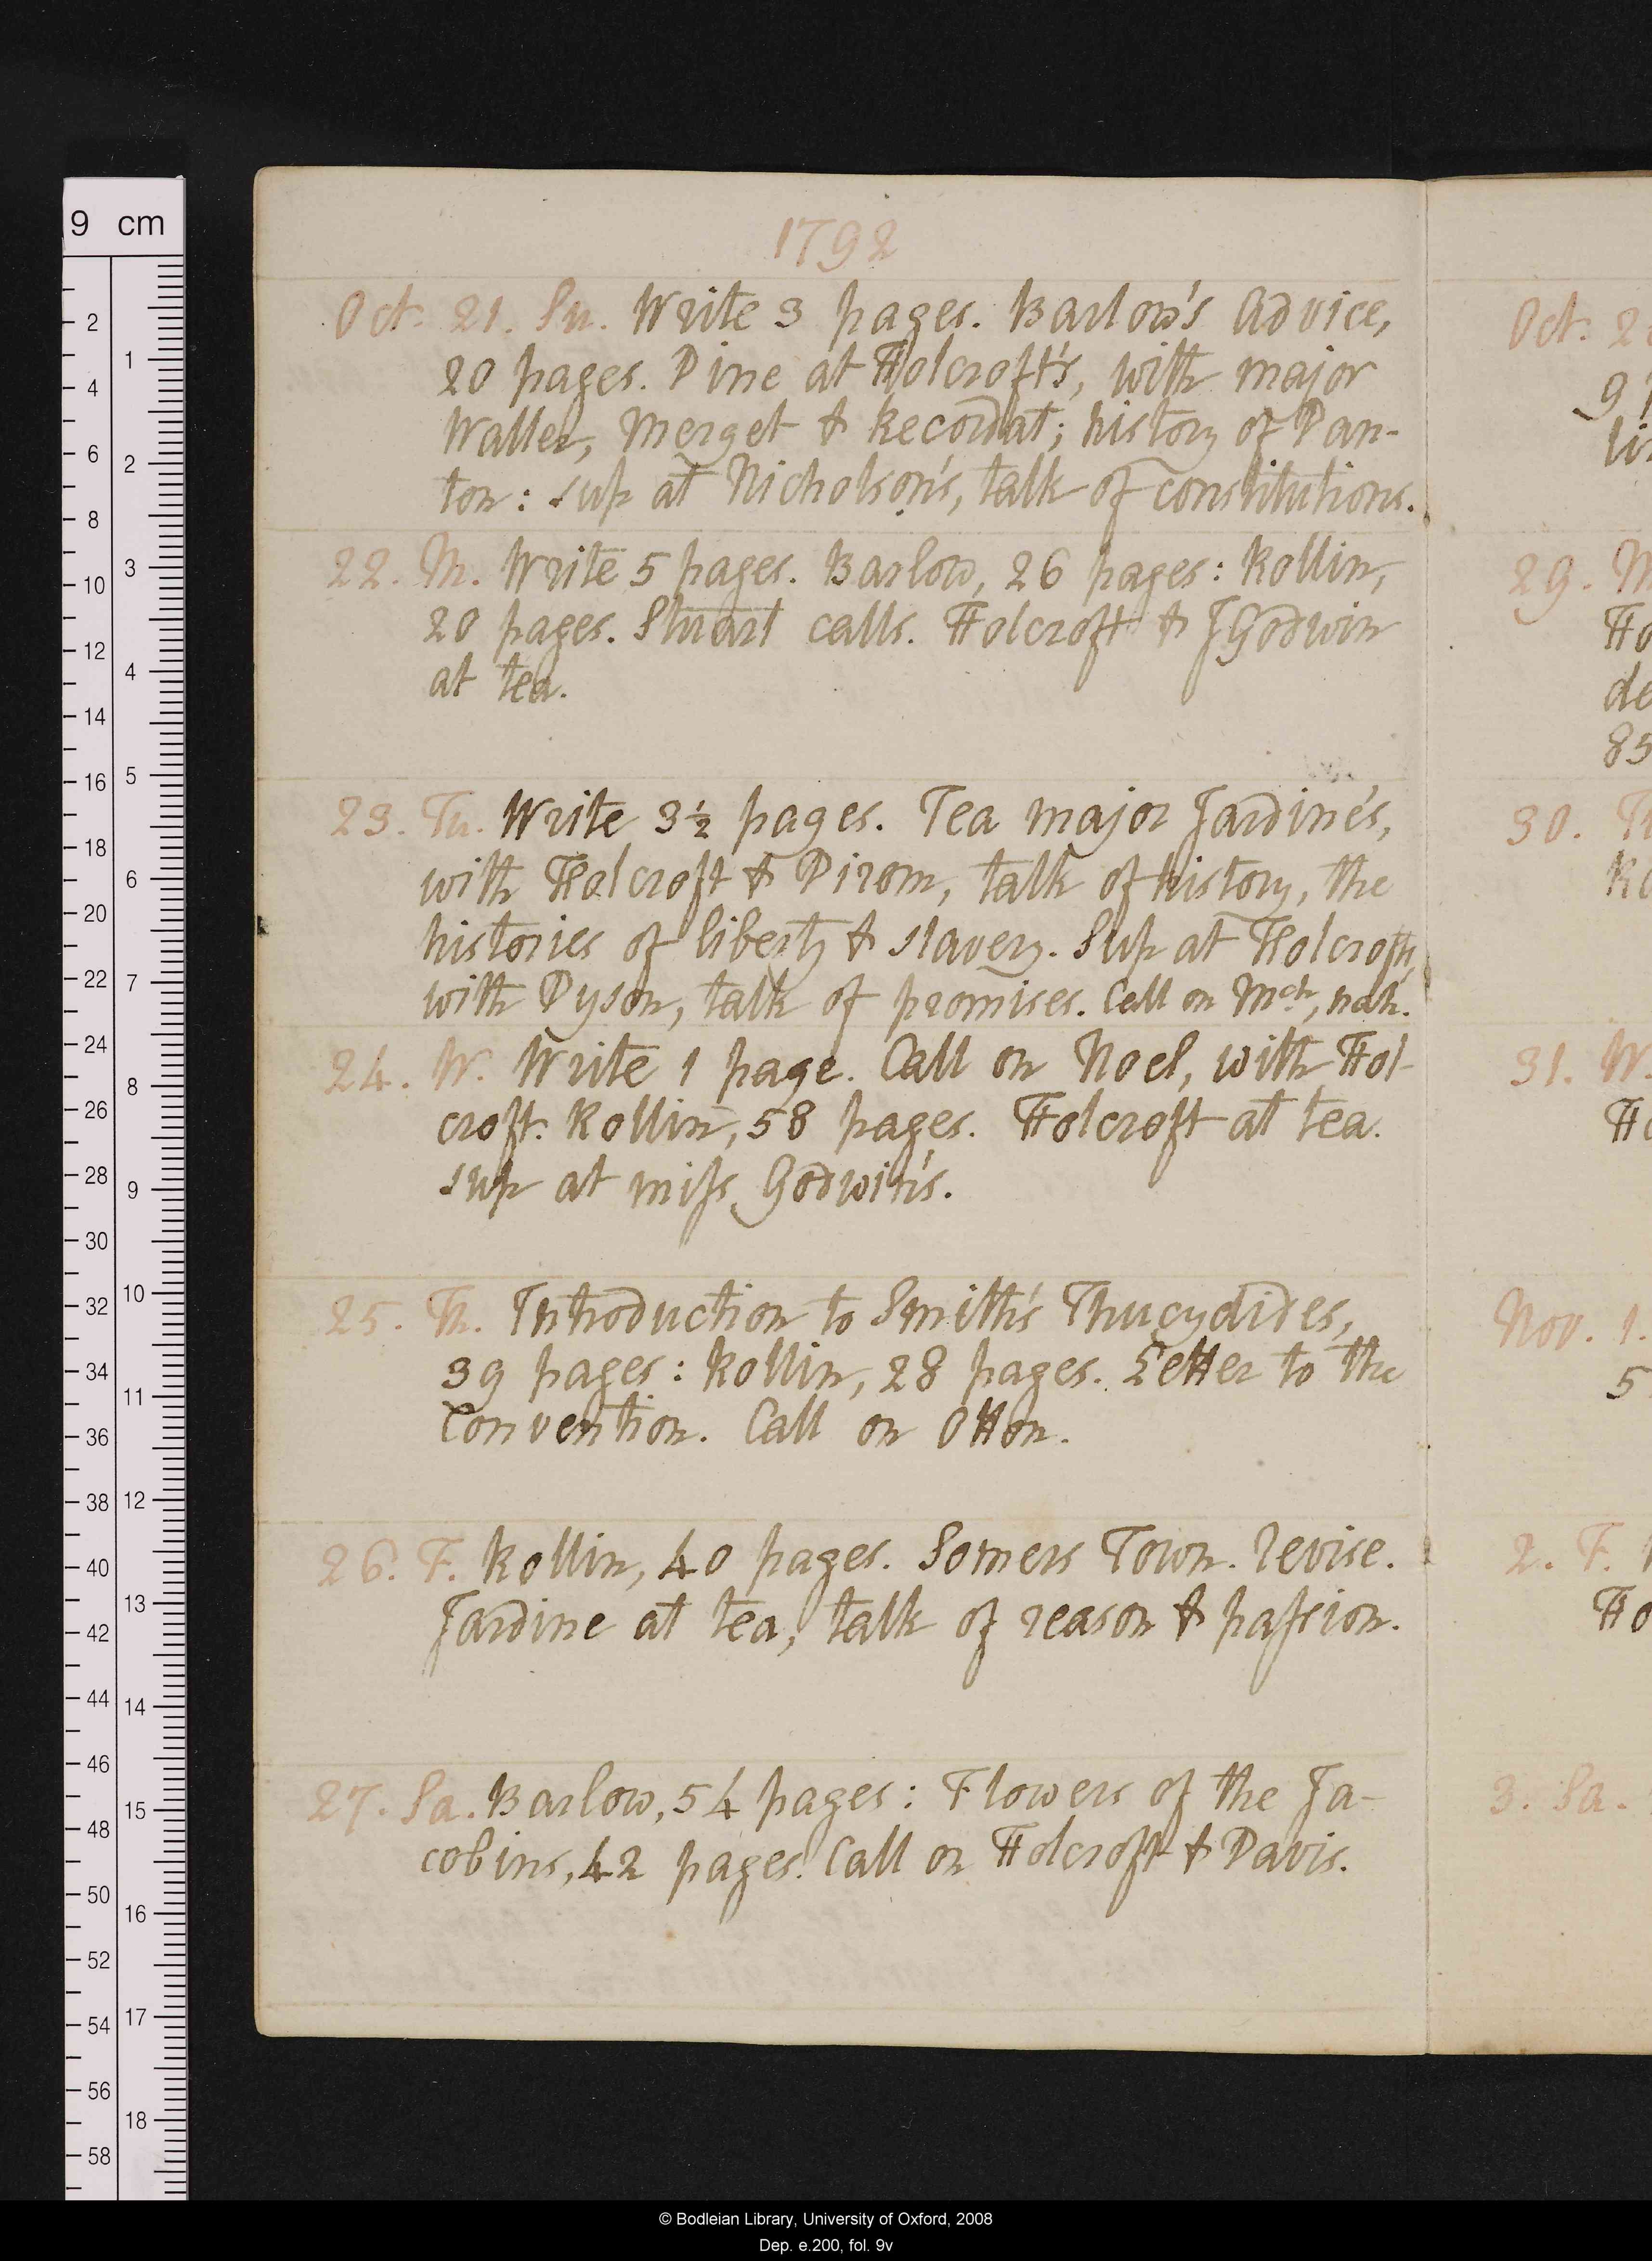 1792
Oct. 21. Su. Write 3 pages. Barlow's Advice,
20 pages. Dine at Holcroft's, with major
Waller, Merget & Recordat; history of Pan-
ton: sup at Nicholson's, talk of constitutions.
22. M. Write 5 pages. Barlow, 26 pages: Rollin,
20 pages. Stuart calls. Holcroft & J Godwin
at tea.
23. Tu. Write 3½ pages. Tea major Jardine's,
with Holcroft & Dirom, talk of history, the
histories of liberty & slavery. Sup at Holcroft's,
with Dyson, talk of promises. Call on Mch, nah.
24. W. Write 1 page. Call on Noel, with Hol-
croft. Rollin, 58 pages. Holcroft at tea.
sup at miſs Godwin's.
25. Th. Introduction to Smith's Thucydides,
39 pages: Rollin, 28 pages. Letter to the
Convention. Call on Otton.
26. F. Rollin, 40 pages. Somers Town. revise.
Jardine at tea, talk of reason & paſsion.
27. Sa. Barlow, 54 pages: Flowers of the Ja-
cobins, 42 pages. Call on Holcroft & Davis.
Oct. 2
29. M
Ho
de
85
30. Tu
Ro
31. W.
Ho
Nov. 1.
5
2. F.
Ho
3. Sa.
9 cm
2 4 6 8 10 12 14 16 18 20 22 24 26 28 30 32 34 36 38 40 42 44 46 48 50 52 54 56 58
1 2 3 4 5 6 7 8 9 10 11 12 13 14 15 16 17 18
© Bodleian Library, University of Oxford, 2008
Dep. e.200, fol. 9v